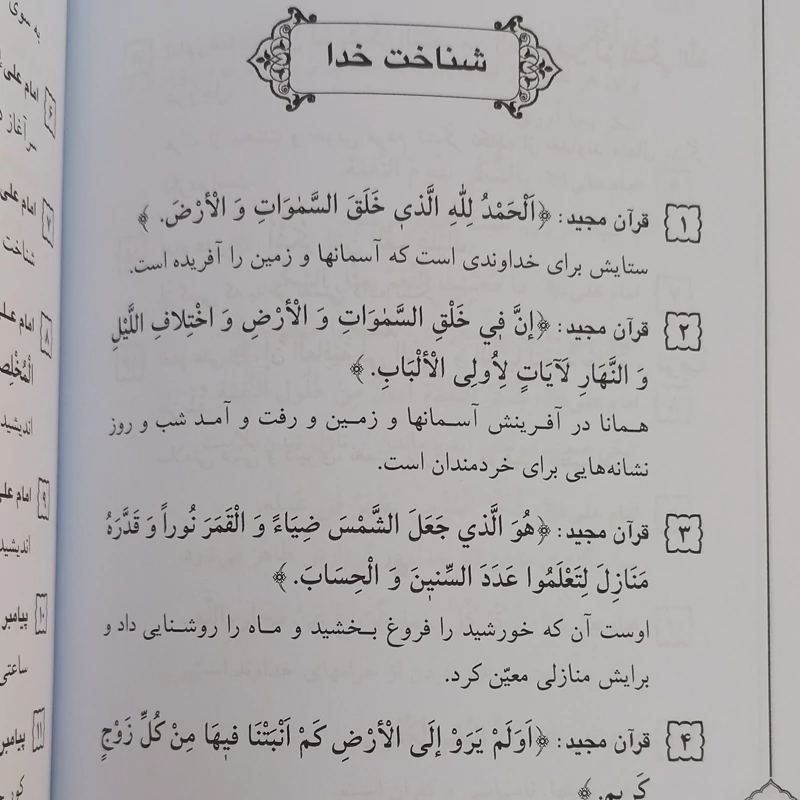 شناخت خدا
۱ قرآن مجید: ﴿اَلْحَمْدُ لِلّٰهِ الَّذي خَلَقَ السَّمٰوَاتِ وَ الْأَرْضَ.﴾
ستایش برای خداوندی است که آسمانها و زمین را آفریده است.
۲ قرآن مجید: ﴿إنَّ فِي خَلْقِ السَّمٰوَاتِ وَ الْأَرْضِ وَ اخْتِلافِ اللَّيْلِ
وَ النَّهَارِ لَآيَاتٍ لِأُولِى الْأَلْبَابِ.﴾
همانا در آفرینش آسمانها و زمین و رفت و آمد شب و روز
نشانه‌هایی برای خردمندان است.
۳ قرآن مجید: ﴿هُوَ الَّذي جَعَلَ الشَّمْسَ ضِيَاءً وَ الْقَمَرَ نُوراً وَ قَدَّرَهُ
مَنَازِلَ لِتَعْلَمُوا عَدَدَ السِّنينَ وَ الْحِسَابَ.﴾
اوست آن که خورشید را فروغ بخشید و ماه را روشنایی داد و
برایش منازلی معیّن کرد.
۴ قرآن مجید: ﴿اَوَلَمْ يَرَوْ إلَى الْأَرْضِ كَمْ اَنْبَتْنَا فيهَا مِنْ كُلِّ زَوْجٍ
كَريمٍ.﴾
به سوی
۶ امام علی
سرآغاز
۷ امام علی
شناخت
۸ امام علی
الْمُخْلِصـ
اندیشید
۹ امام علی
اندیشید
۱۰ پیامبر
ساعتی
۱۱ پیامبر